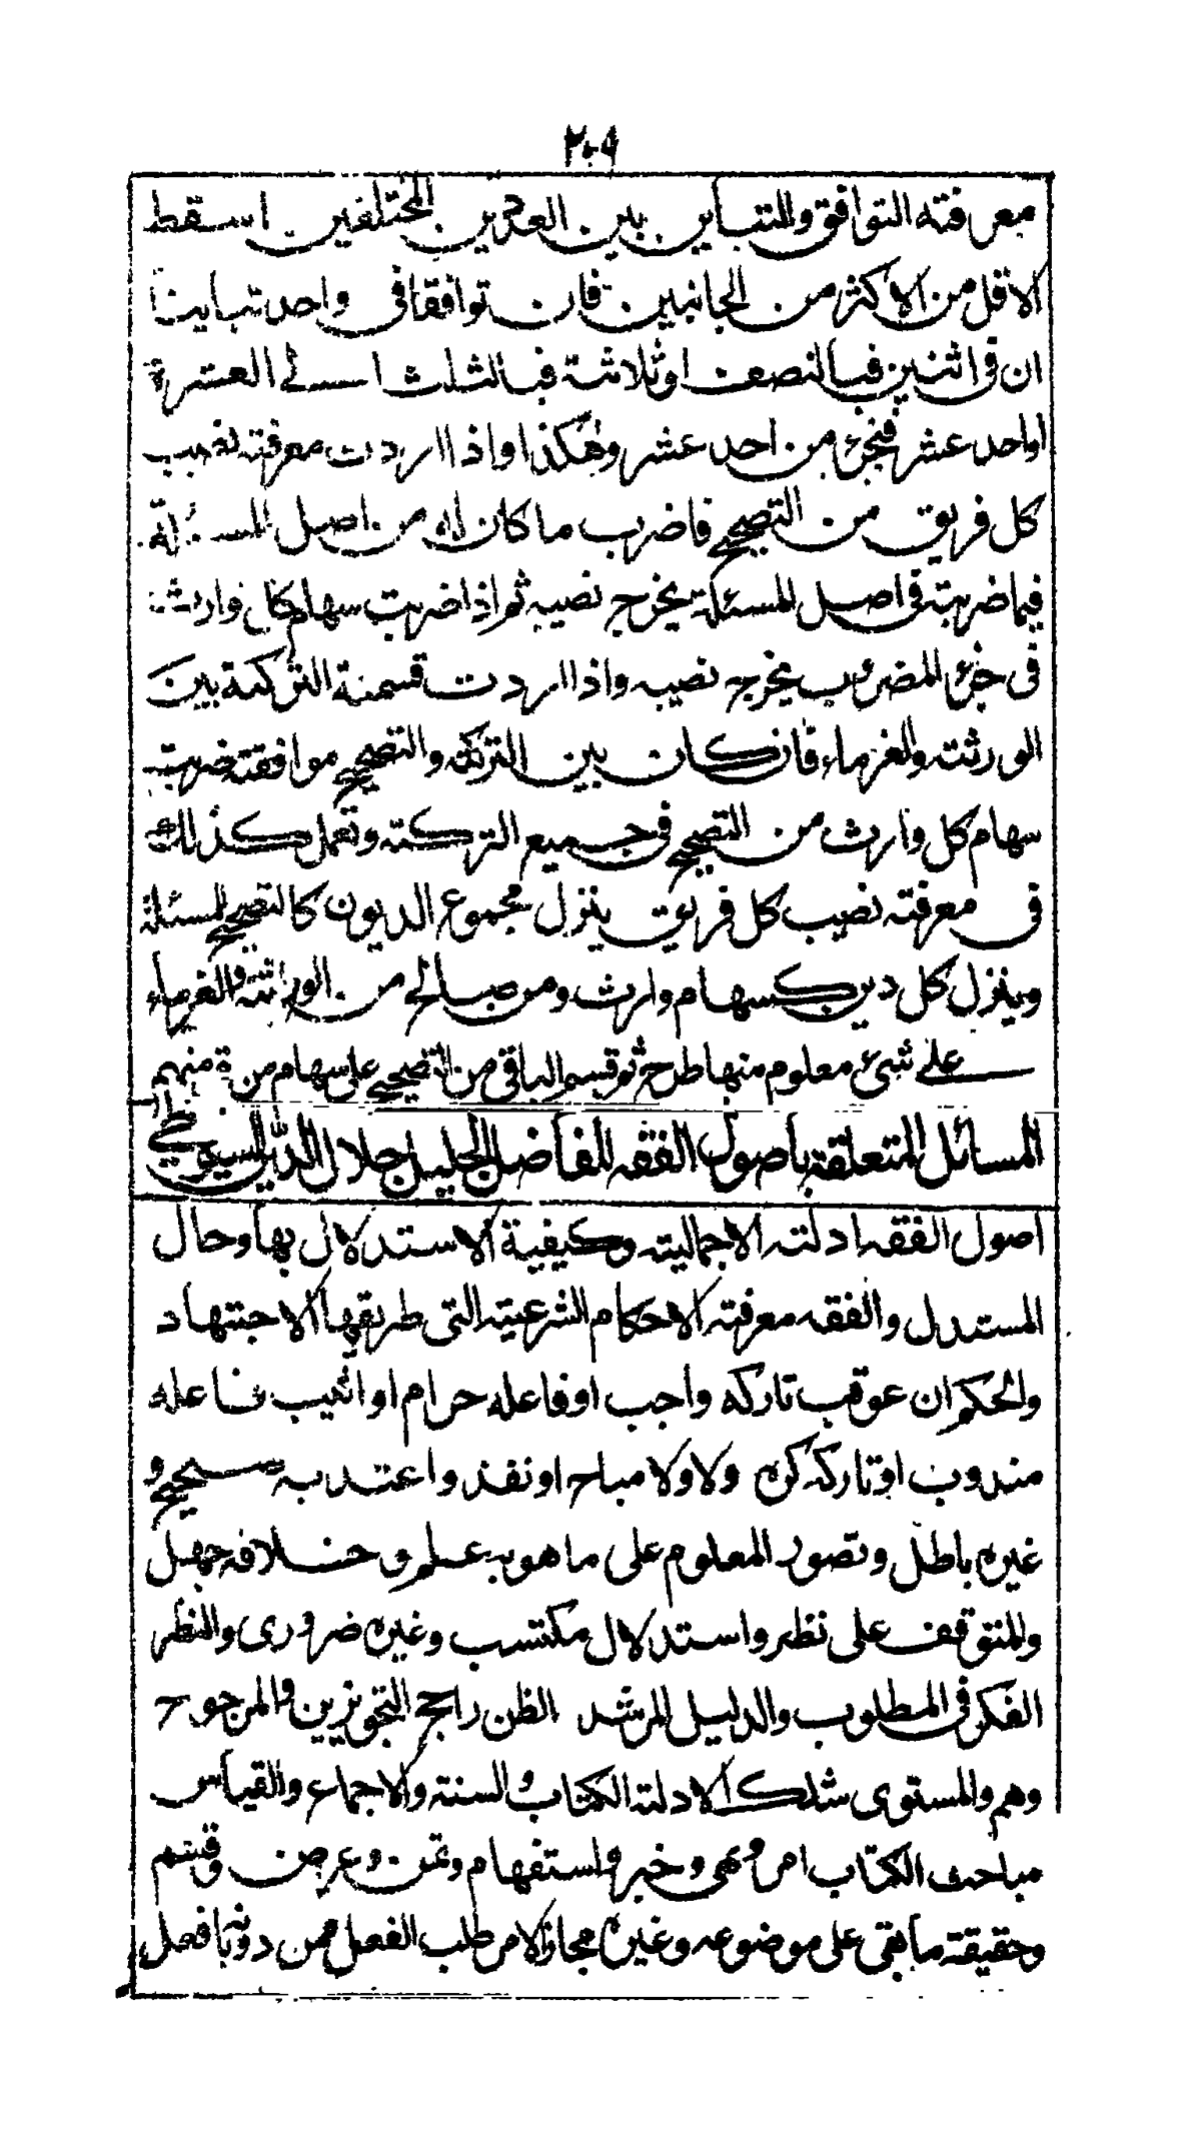 ٢٠٩
معرفته التوافق والتباين بين العددين المختلفين اسقط
الاقل من الاكثر من الجانبين فان توافقا فى واحد تباينا
ان فى اثنين فبالنصف او ثلاثة فبالثلث الے العشرة
او احد عشر فنجزء من احد عشر وهكذا واذا اردت معرفته نصيب
كل فريق من التصحيح فاضرب ما كان له من اصل المسئلة
فيما ضربته فى اصل المسئلة يخرج نصيبه ثم اذا ضربت سهام كل وارث
فى جزء المضروب يخرجه نصيبه واذا اردت قسمة التركة بين
الورثته والغرماء فان كان بين التركة والتصحيح موافقته ضربت
سهام كل وارث من التصحيح فى جميع التركته وتعمل كذلك
فى معرفته نصيب كل فريق ينزل مجموع الديون كالتصحيح للمسئلة
وينزل كل دين كسهام وارث ومن صالح من الورثته والغرماء
علے شىء معلوم منها طرح ثم قسم الباقى من التصحيح على سهام من منهم
المسائل المتعلقة باصول الفقه للفاضل الجليل جلال الدين السيوطي
اصول الفقه ادلته الاجماليته وكيفية الاستدلال بها وحال
المستدل والفقه معرفته الاحكام الشرعيته التى طريقها الاجتهاد
والحكم ان عوقب تاركه واجب او فاعله حرام او اثيب فاعله
مندوب او تاركه كره ولا ولا مباح او نفذ واعتد به صحيح و
غيره باطل وتصور المعلوم على ما هو به علم وخلافه جهل
والمتوقف على نظر واستدلال مكتسب وغيره ضرورى والنظر
الفكر فى المطلوب والدليل المرشد الظن راجح التجويزين والمرجوح
وهم والمستوى شك الادلته الكتاب والسنته والاجماع والقياس
مباحث الكتاب امر ونهى وخبر واستفهام وتمن وعرض وقسم
وحقيقته ما بقى على موضوعه وغيره مجاز الامر طلب الفعل ممن دونه بافعل